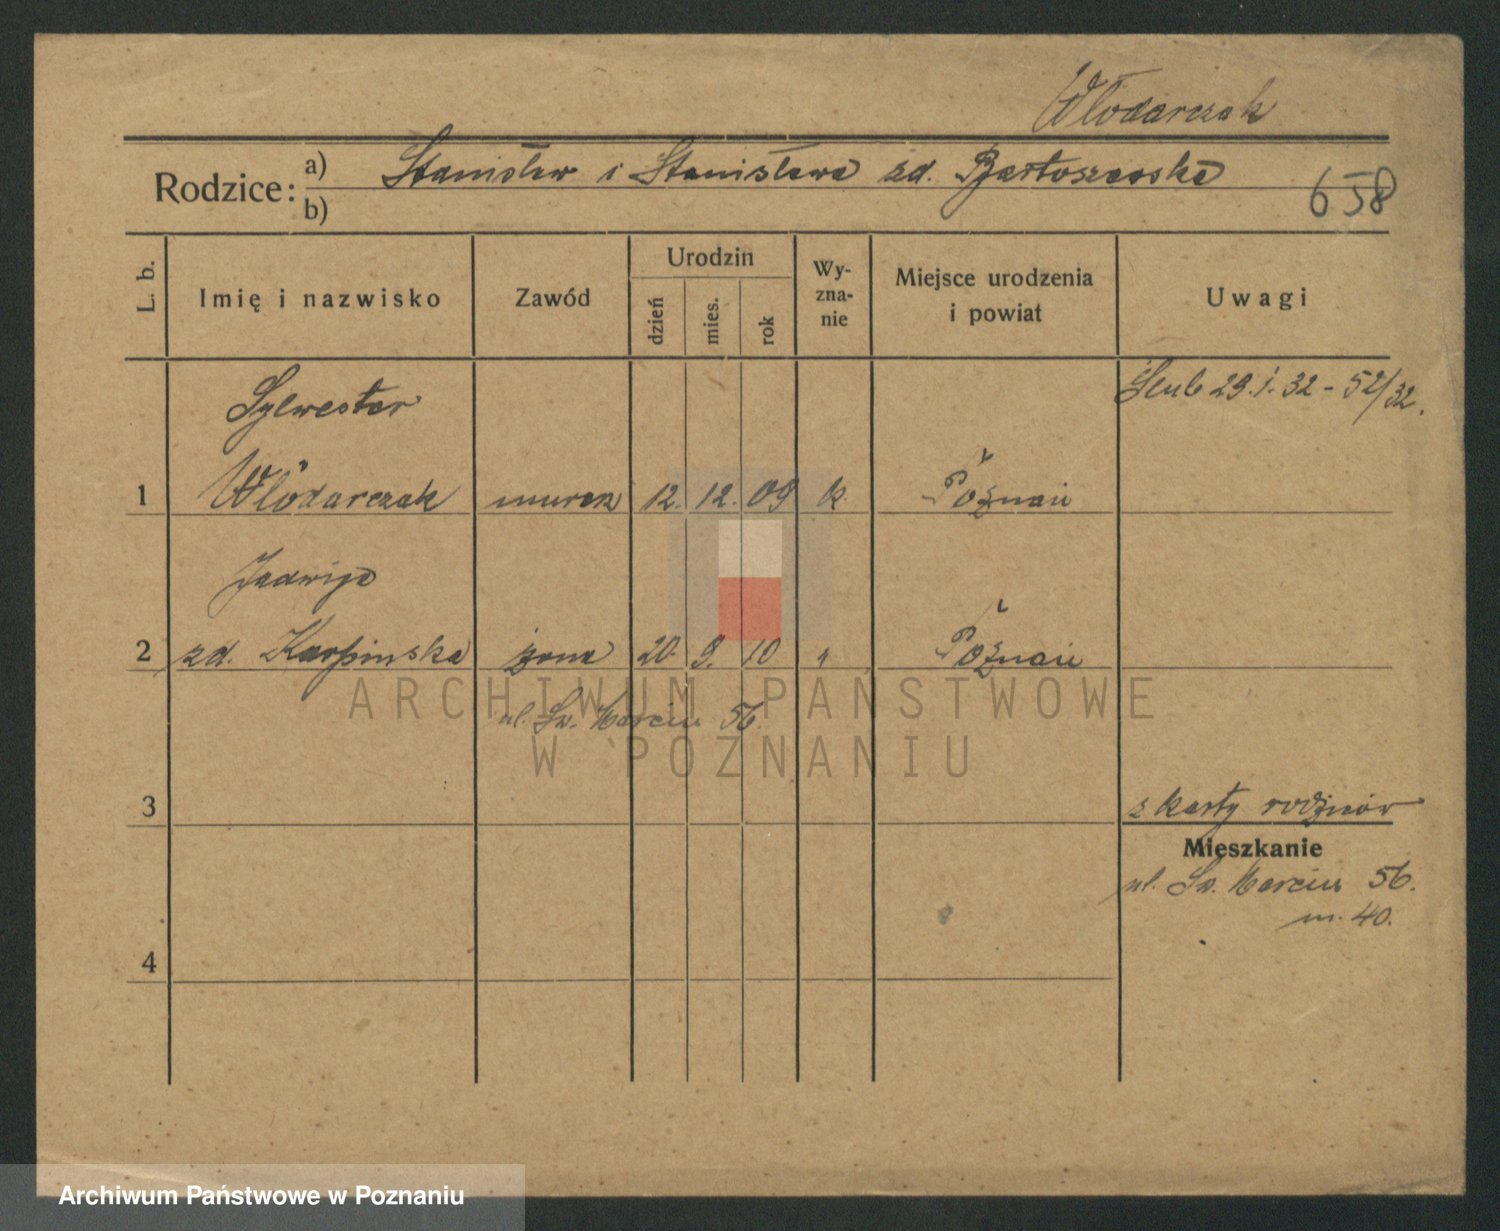 Włodarczak
Rodzice: a) Stanisław i Stanisława zd. Bartoszewska
b)
658
L. b.
Imię i nazwisko
Zawód
Urodzin
dzień
mies.
rok
Wy-
zna-
nie
Miejsce urodzenia
i powiat
Uwagi
Ślub 29.1.32 - 52/32.
Sylwester
1 Włodarczak murarz 12. 12. 09 k. Poznań
Jadwiga
2 zd. Karpinska żona 20. 9. 10 " Poznań
ul. Św. Marcin 56.
3
z karty rodziców
Mieszkanie
ul. Św. Marcin 56.
m. 40.
4
ARCHIWUM PAŃSTWOWE
W POZNANIU
Archiwum Państwowe w Poznaniu